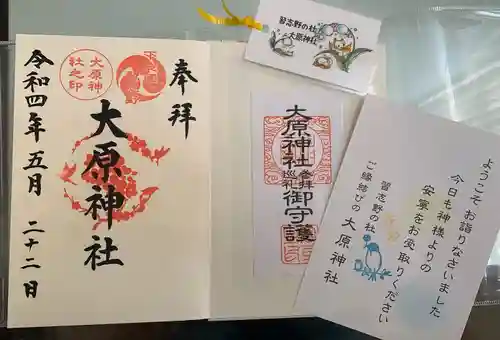 奉拝
大原神社
令和四年五月二十二日
大原神
社之印
習志野の杜
大原神社
大原神社参拝
巡礼御守護
ようこそお詣りなさいました
今日も神様よりの
安寧をお受取りください
習志野の杜
ご縁結びの大原神社